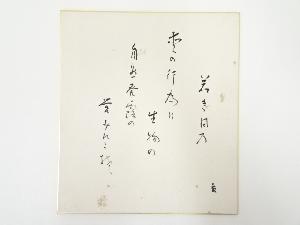 若き日の
愛の行為は
生物の
自然発露の
営みにて候